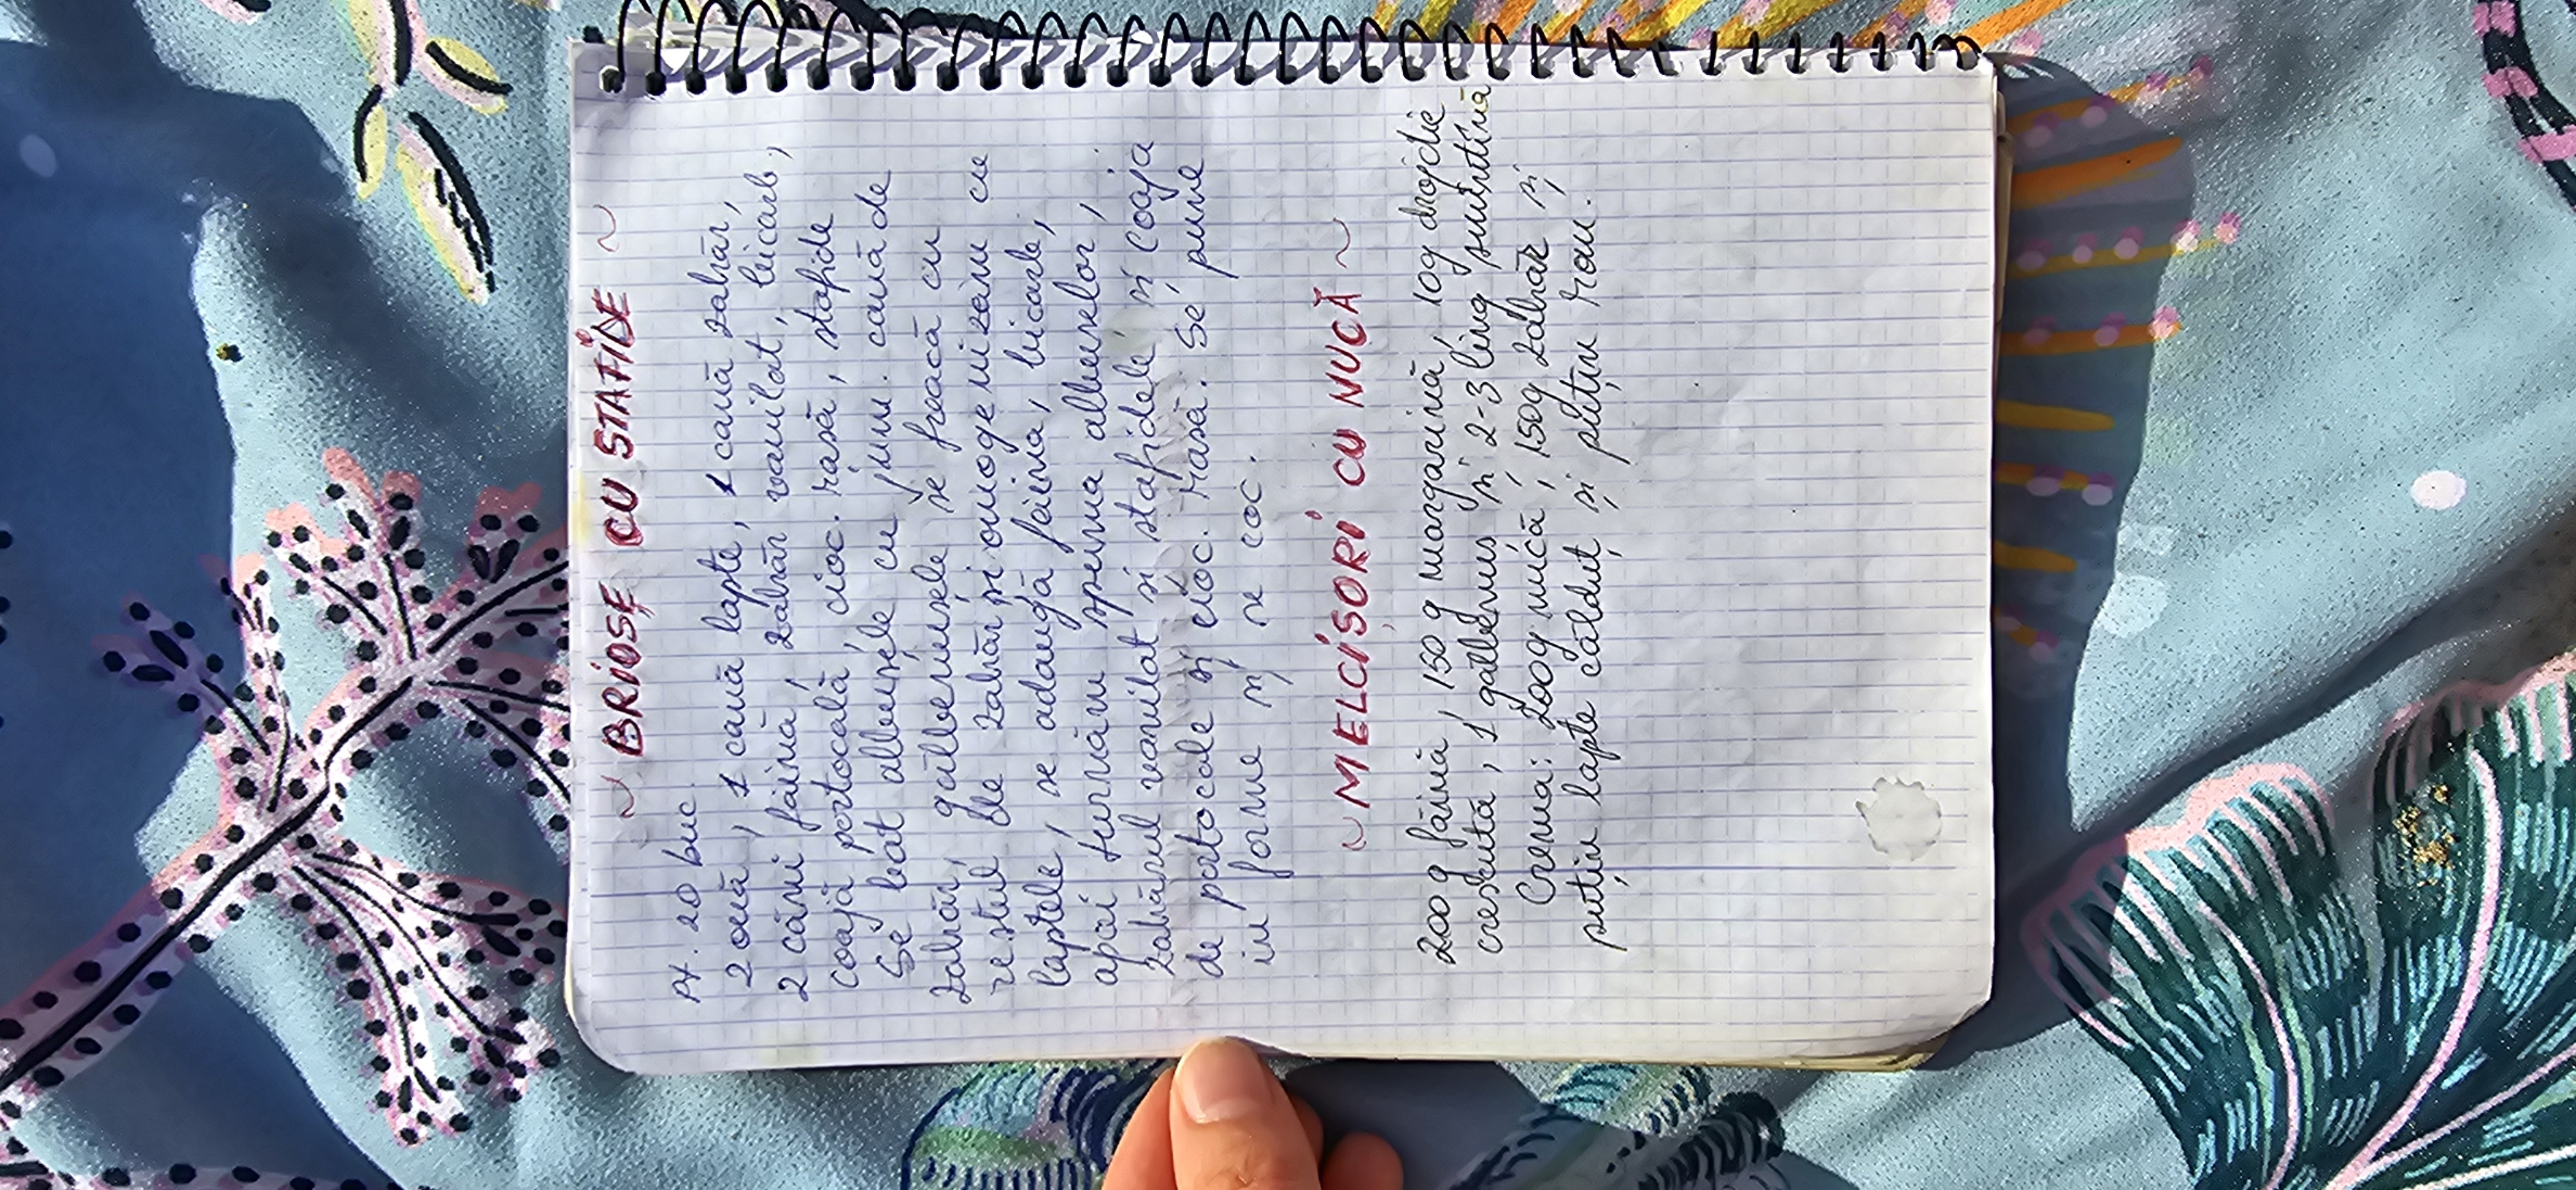 ~ BRIOȘE CU STAFIDE ~
Pt. 20 buc.
2 ouă, 1 cană lapte, 1 cană zahăr,
2 căni făină, zahăr vanilat, bicarb,
coajă portocală, cioc. rasă, stafide
Se bat albușele cu jum. cană de
zahăr, gălbenușele se freacă cu
restul de zahăr și omogenizăm cu
laptele, se adaugă făina, bicarb,
apoi turnăm spuma albușelor,
zahărul vanilat și stafidele și coaja
de portocale și cioc. rasă. Se pune
în forme și se coc.
~ MELCIȘORI CU NUCĂ ~
200 g făină, 150 g margarină, 10g drojdie
crescută, 1 gălbenuș și 2-3 ling smântână
Crema: 200g nucă, 150g zahăr și
puțin lapte călduț și puțin rom.